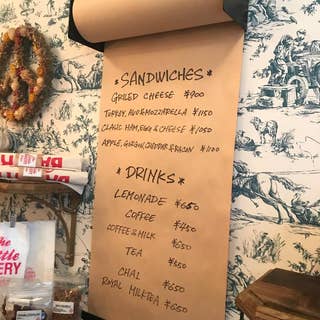 *SANDWICHES*
GRILLED CHEESE ¥900
TURKEY, AVO & MOZZARELLA ¥1150
CLASSIC HAM, EGG & CHEESE ¥1050
APPLE, GORGON, CHEDDAR & BACON ¥1100
*DRINKS*
LEMONADE ¥650
COFFEE ¥450
COFFEE & MILK ¥650
TEA
CHAI
ROYAL MILKTEA ¥650
The